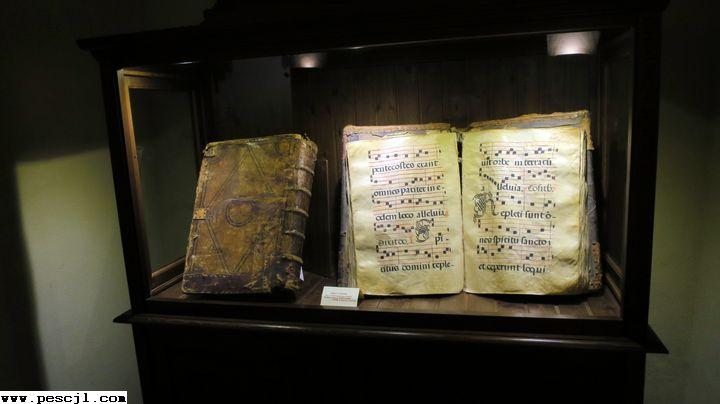 pentecostes erant
omnes pariter in e
odem loco alleluia,
Spi
ritus domini reple-
uit orbe terrarū
lleluia,
Repleti sunt ō
nes spiritu sancto
et ceperunt loqui
www.pescjl.com